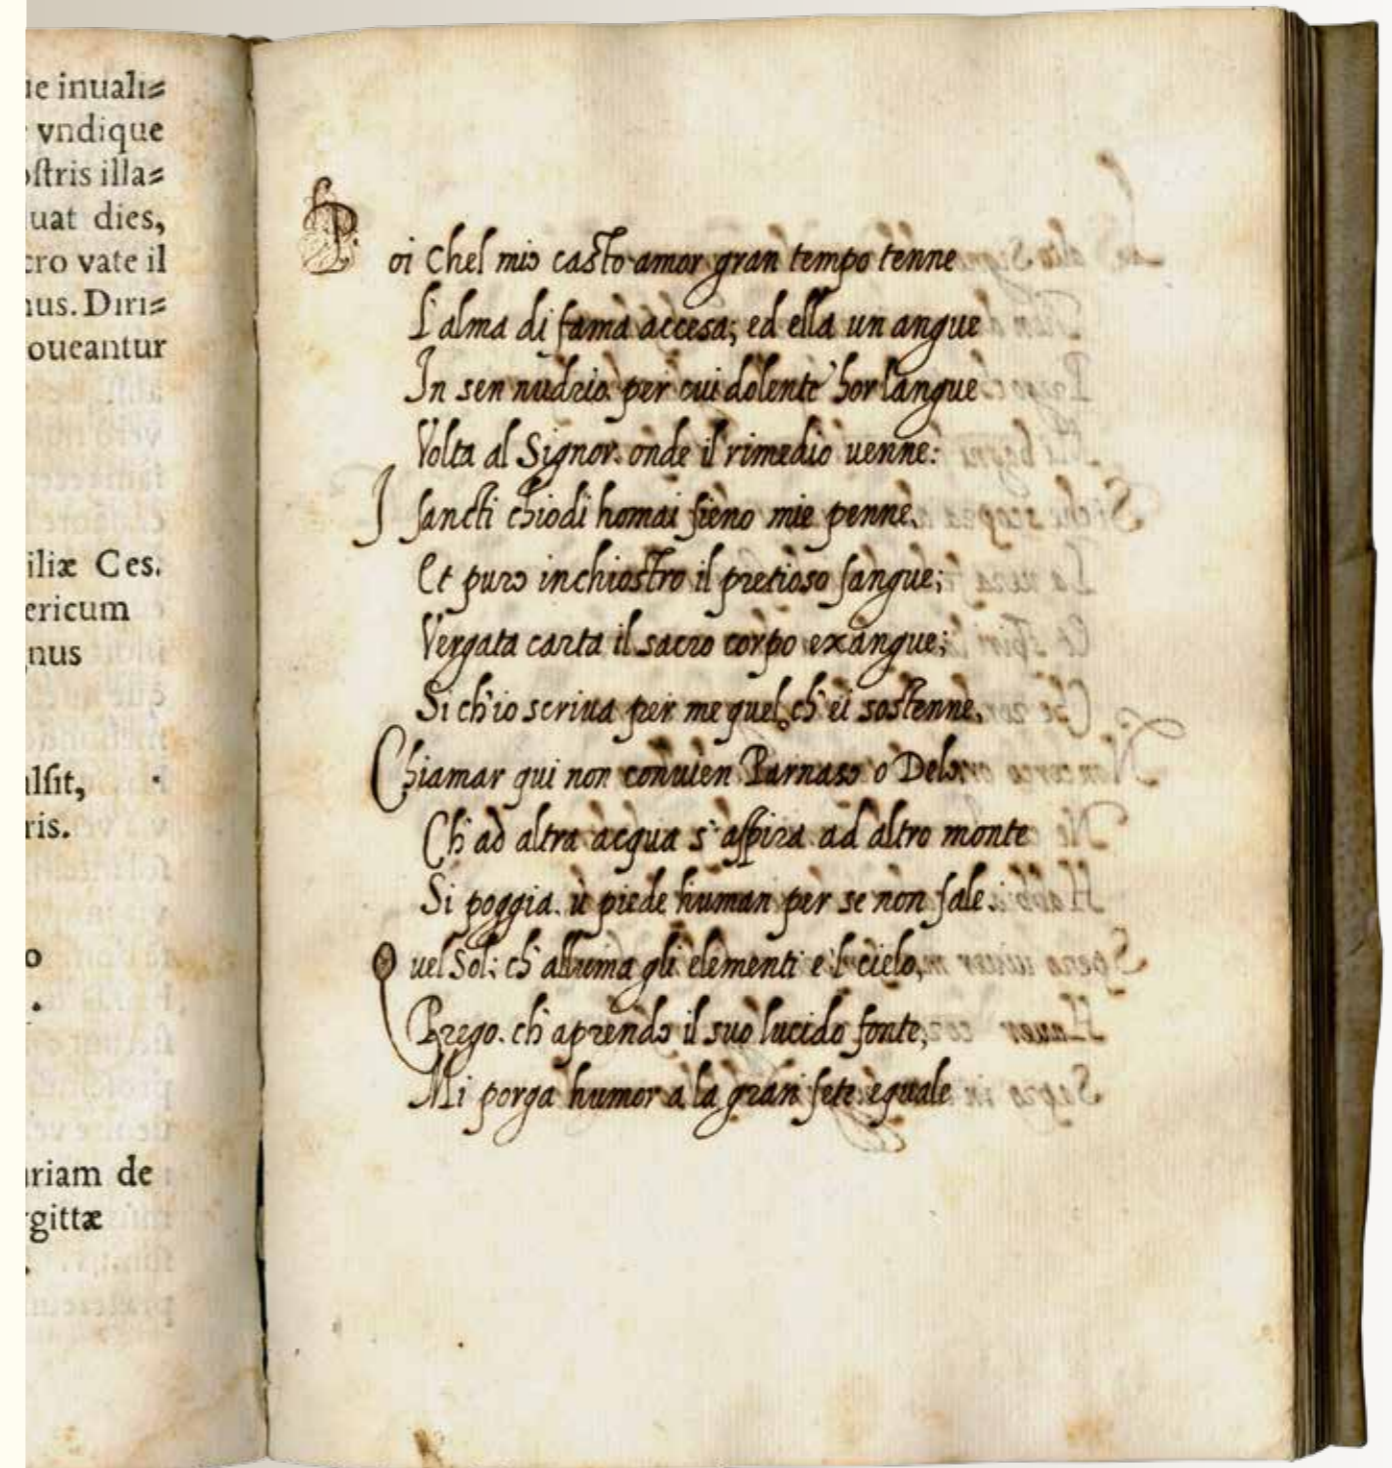 ie inuali=
vndique
ostris illa=
uat dies,
cro vate il
nus. Diri=
oueantur
iliæ Ces.
ericum
nus
lsit,
ris.
o
riam de
gittæ
Poi chel mio casto amor gran tempo tenne
L'alma di fama accesa; ed ella un angue
In sen nudrio. per cui dolente hor langue
Volta al Signor. onde il rimedio uenne:
I sancti chiodi homai sieno mie penne,
Et puro inchiostro il pretioso sangue;
Vergata carta il sacro corpo exangue;
Si ch'io scriua per me quel, ch'ei sostenne,
Chiamar qui non conuien Parnaso o Delo:
Ch'ad altra acqua s'aspira ad altro monte
Si poggia. ù piede human per se non sale.
Quel Sol; ch'alluma gli elementi e'l cielo,
Prego. ch'aprendo il suo lucido fonte,
Mi porga humor a la gran sete eguale